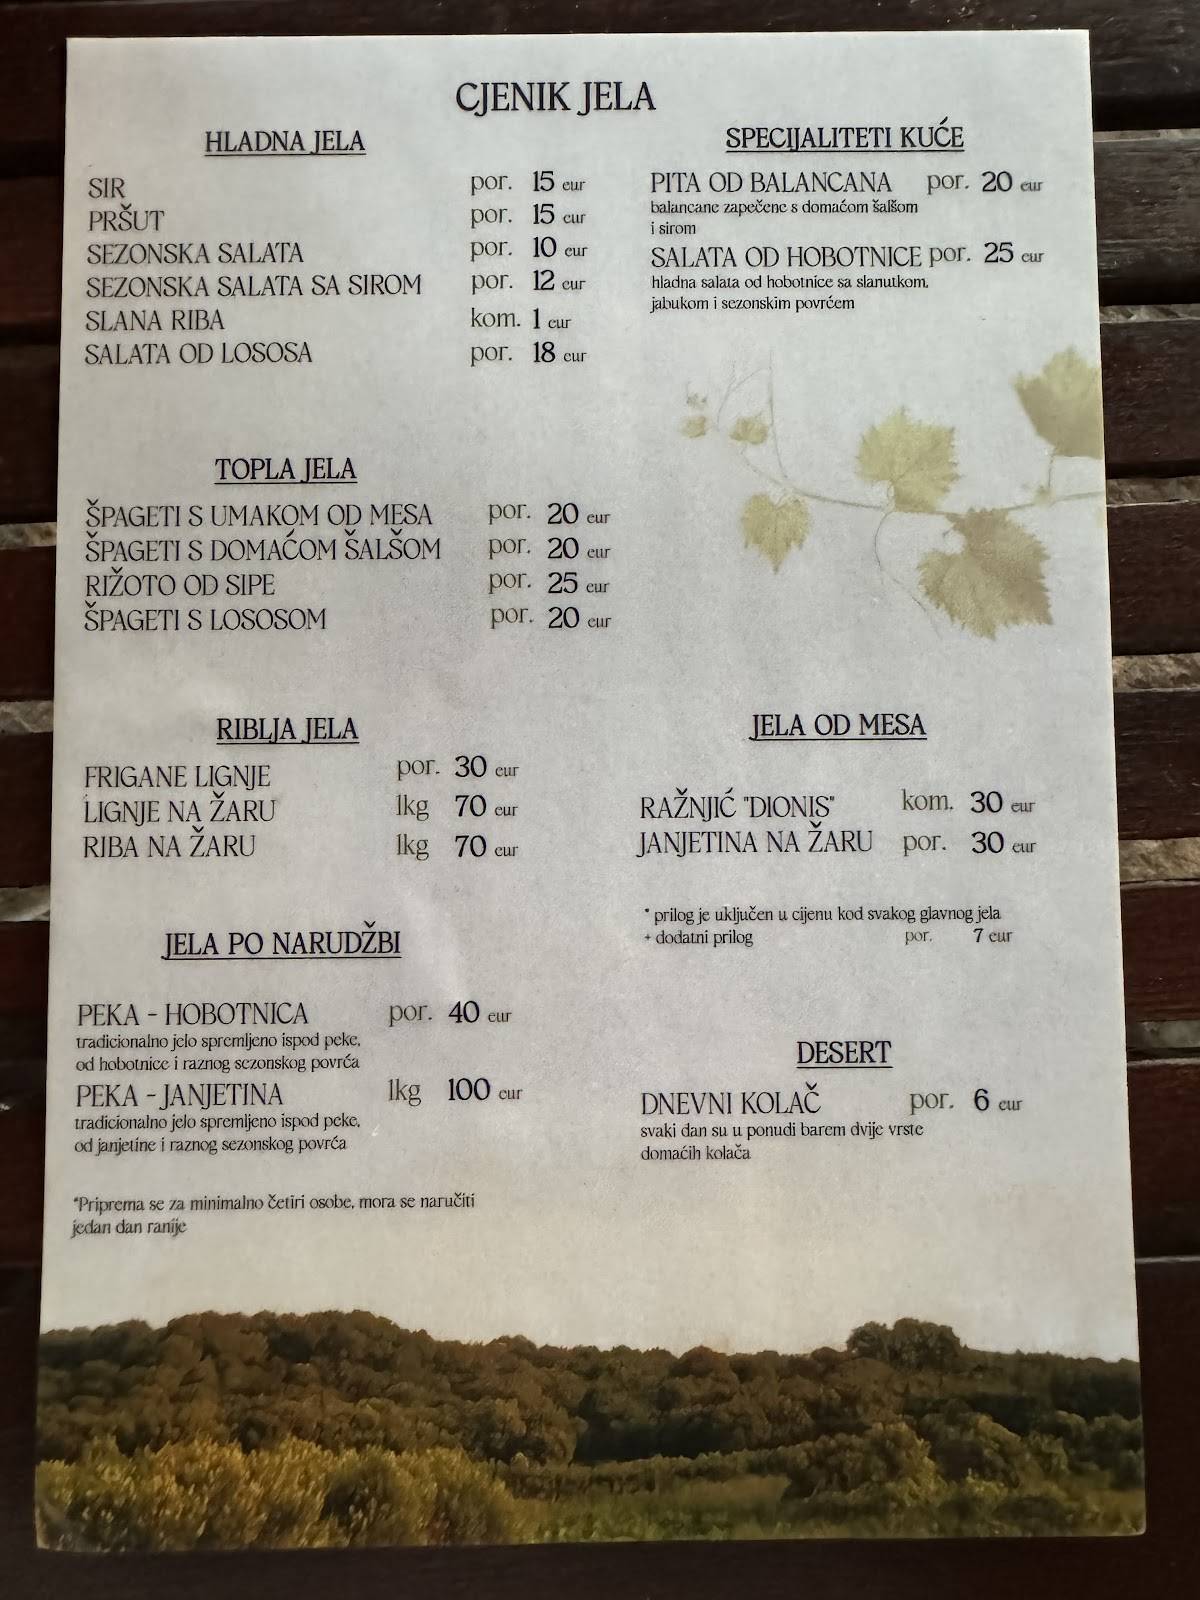 CJENIK JELA
HLADNA JELA
SIR por. 15 eur
PRŠUT por. 15 eur
SEZONSKA SALATA por. 10 eur
SEZONSKA SALATA SA SIROM por. 12 eur
SLANA RIBA kom. 1 eur
SALATA OD LOSOSA por. 18 eur
SPECIJALITETI KUĆE
PITA OD BALANCANA por. 20 eur
balancane zapečene s domaćom šalšom
i sirom
SALATA OD HOBOTNICE por. 25 eur
hladna salata od hobotnice sa slanutkom,
jabukom i sezonskim povrćem
TOPLA JELA
ŠPAGETI S UMAKOM OD MESA por. 20 eur
ŠPAGETI S DOMAĆOM ŠALŠOM por. 20 eur
RIŽOTO OD SIPE por. 25 eur
ŠPAGETI S LOSOSOM por. 20 eur
RIBLJA JELA
FRIGANE LIGNJE por. 30 eur
LIGNJE NA ŽARU 1kg 70 eur
RIBA NA ŽARU 1kg 70 eur
JELA OD MESA
RAŽNJIĆ "DIONIS" kom. 30 eur
JANJETINA NA ŽARU por. 30 eur
* prilog je uključen u cijenu kod svakog glavnog jela
+ dodatni prilog por. 7 eur
JELA PO NARUDŽBI
PEKA - HOBOTNICA por. 40 eur
tradicionalno jelo spremljeno ispod peke,
od hobotnice i raznog sezonskog povrća
PEKA - JANJETINA 1kg 100 eur
tradicionalno jelo spremljeno ispod peke,
od janjetine i raznog sezonskog povrća
*Priprema se za minimalno četiri osobe, mora se naručiti
jedan dan ranije
DESERT
DNEVNI KOLAČ por. 6 eur
svaki dan su u ponudi barem dvije vrste
domaćih kolača